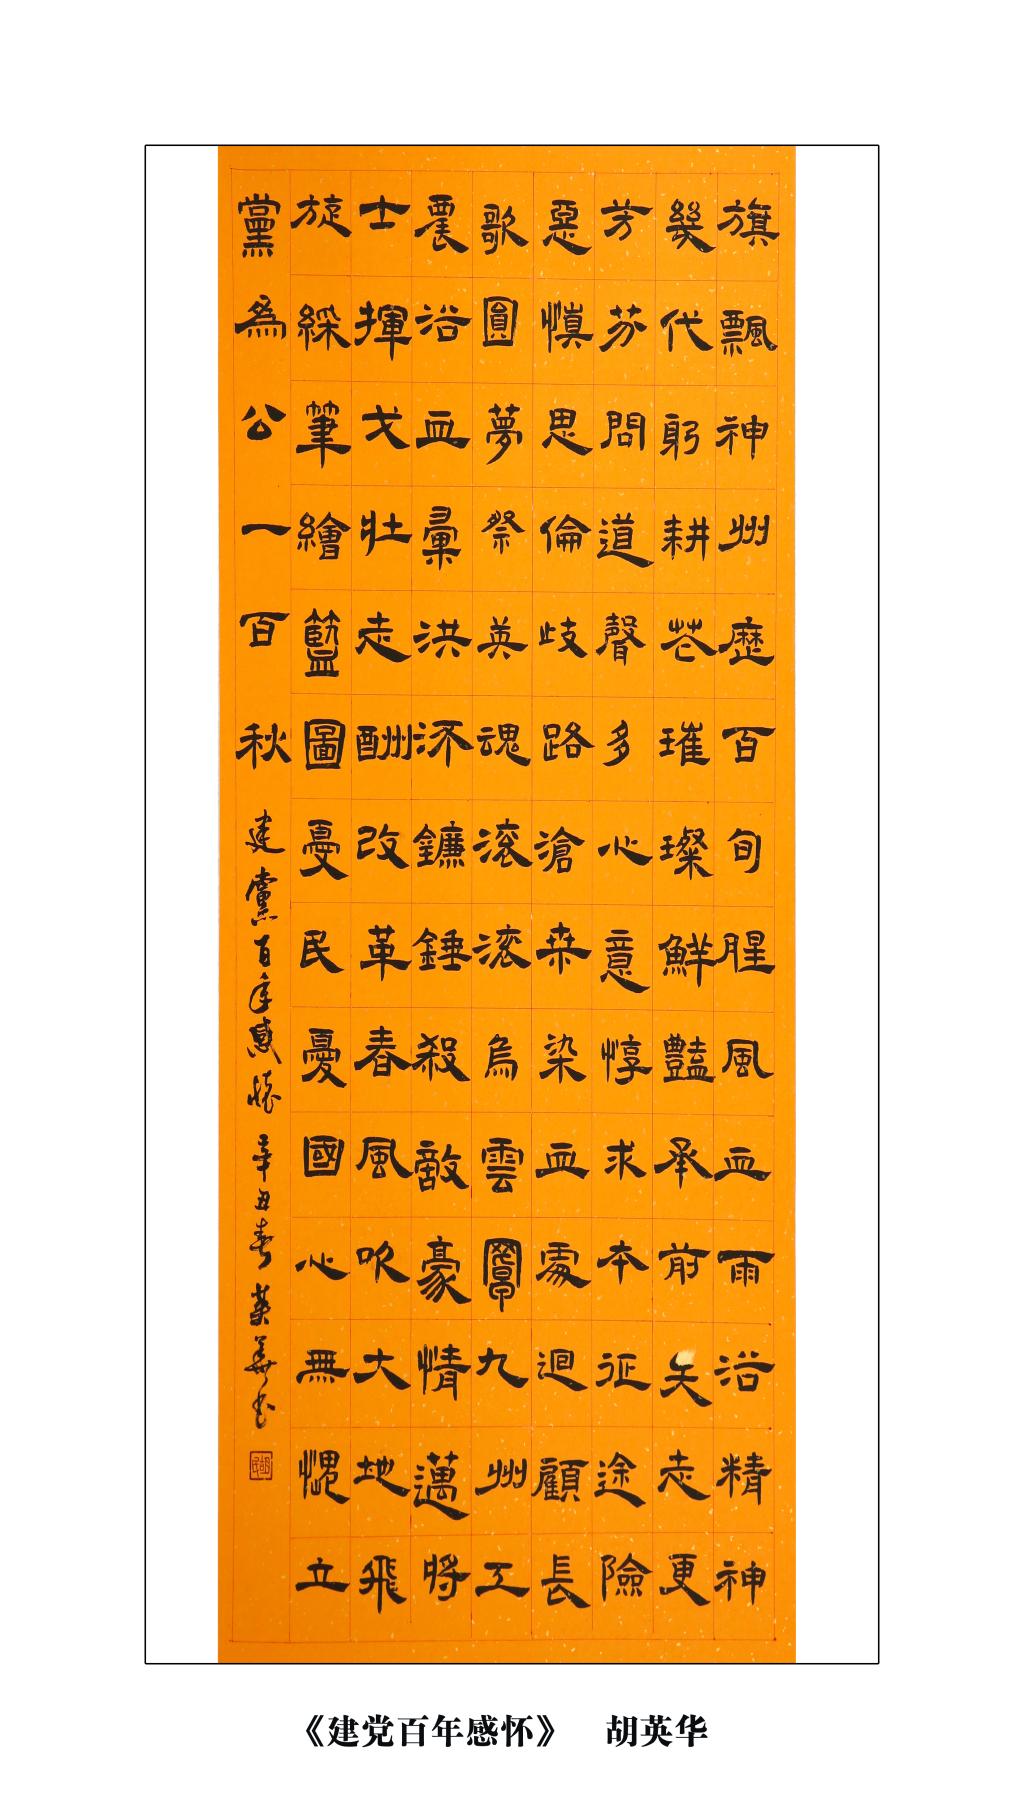 旗飄神州歷百旬腥風血雨沿精神
幾代躬耕芒璀璨鮮豔承前矢志更
芳芬問道聲多心意惇求本征途險
惡慎思倫歧路滄桑染血處迴顧長
歌圓夢祭英魂滚滚烏雲罩九州工
農沿血彙洪流鐮錘殺敵豪情邁將
士揮戈壯志酬改革春風吹大地飛
旋綵筆繪藍圖憂民憂國心無愧立
黨為公一百秋
建黨百年感懷
辛丑春 英華书
《建党百年感怀》 胡英华